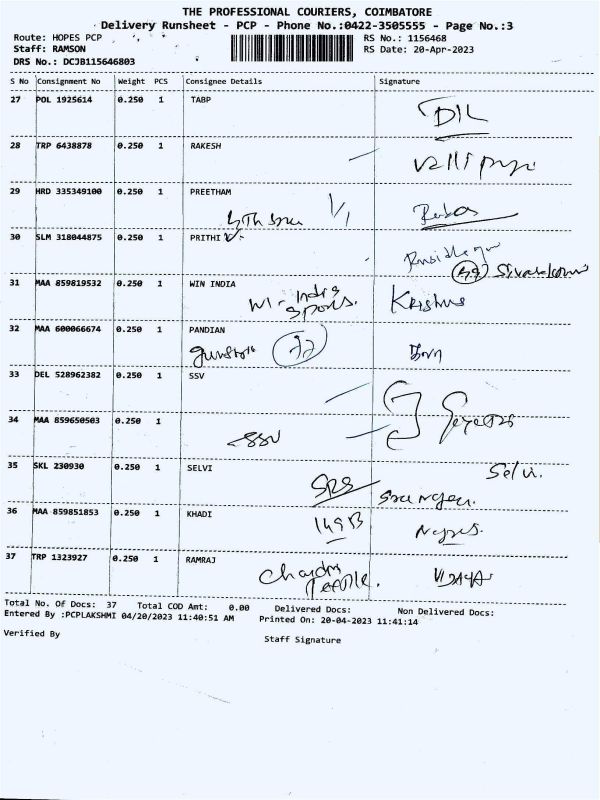 THE PROFESSIONAL COURIERS, COIMBATORE
Delivery Runsheet - PCP - Phone No.:0422-3505555 - Page No.:3
Route: HOPES PCP
RS No.: 1156468
Staff: RAMSON
RS Date: 20-Apr-2023
DRS No.: DCJB115646803
S No Consignment No Weight PCS Consignee Details Signature
27 POL 1925614 0.250 1 TABP
28 TRP 6438878 0.250 1 RAKESH
29 HRD 335349100 0.250 1 PREETHAM
30 SLM 318044875 0.250 1 PRITHI V.
31 MAA 859819532 0.250 1 WIN INDIA
Win India Sports. Krishna
32 MAA 600066674 0.250 1 PANDIAN
33 DEL 528962382 0.250 1 SSV
34 MAA 859650503 0.250 1
SSV
35 SKL 230930 0.250 1 SELVI
Selvi.
SRS
36 MAA 859851853 0.250 1 KHADI
37 TRP 1323927 0.250 1 RAMRAJ
Chandra Textile. VIJAYA
Total No. Of Docs: 37 Total COD Amt: 0.00 Delivered Docs: Non Delivered Docs:
Entered By :PCPLAKSHMI 04/20/2023 11:40:51 AM Printed On: 20-04-2023 11:41:14
Verified By Staff Signature